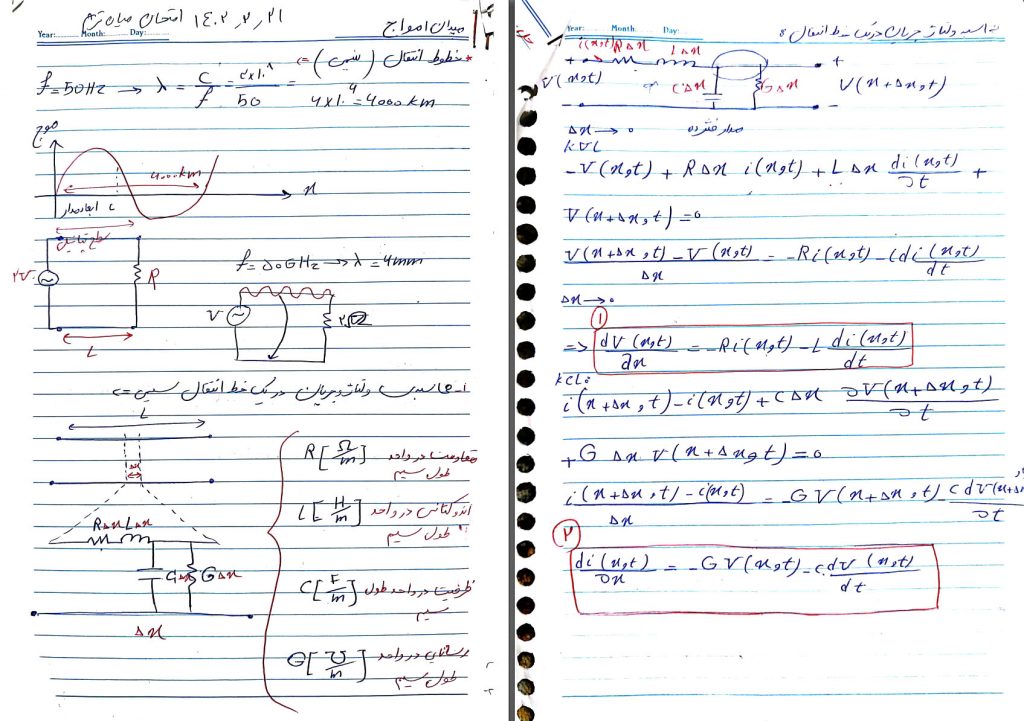 میدان امواج
امتحان میان ترم ۲۱ ر ۲ ر ۱۴۰۲
Year: Month: Day:
* خطوط انتقال (سیمی) :
f = 50Hz → λ = c/f = ۲×۱۰^۸/50 =
4×1.^4 = 4000 km
موج
4000km
x
ابعاد مدار L
f = 50GHz → λ = 4mm
2V
R
V
L
۱- محاسبه ولتاژ و جریان در یک خط انتقال سیمی :
L
Δx
RΔx LΔx
CΔx GΔx
Δx
R[Ω/m] مقاومت در واحد
طول سیم
L[H/m] اندوکتانس در واحد
طول سیم
C[F/m] ظرفیت در واحد طول
سیم
G[℧/m] رسانایی در واحد
طول سیم
Year: Month: Day:
محاسبه ولتاژ جریان در یک خط انتقال :
i(x,t) RΔx LΔx
+ +
V(x,t) CΔx GΔx V(x+Δx,t)
- -
Δx → 0 مدار فشرده
KVL
-V(x,t) + RΔx i(x,t) + LΔx di(x,t)/∂t +
V(x+Δx,t) = 0
V(x+Δx,t) - V(x,t)/Δx = -Ri(x,t) - L di(x,t)/dt
Δx → 0
①
=> dV(x,t)/∂x = -Ri(x,t) - L di(x,t)/dt
KCL:
i(x+Δx,t) - i(x,t) + CΔx ∂V(x+Δx,t)/∂t
+ G Δx V(x+Δx,t) = 0
i(x+Δx,t) - i(x,t)/Δx = -GV(x+Δx,t) - C dV(x+Δx/∂t
②
di(x,t)/∂x = -GV(x,t) - C dV(x,t)/dt